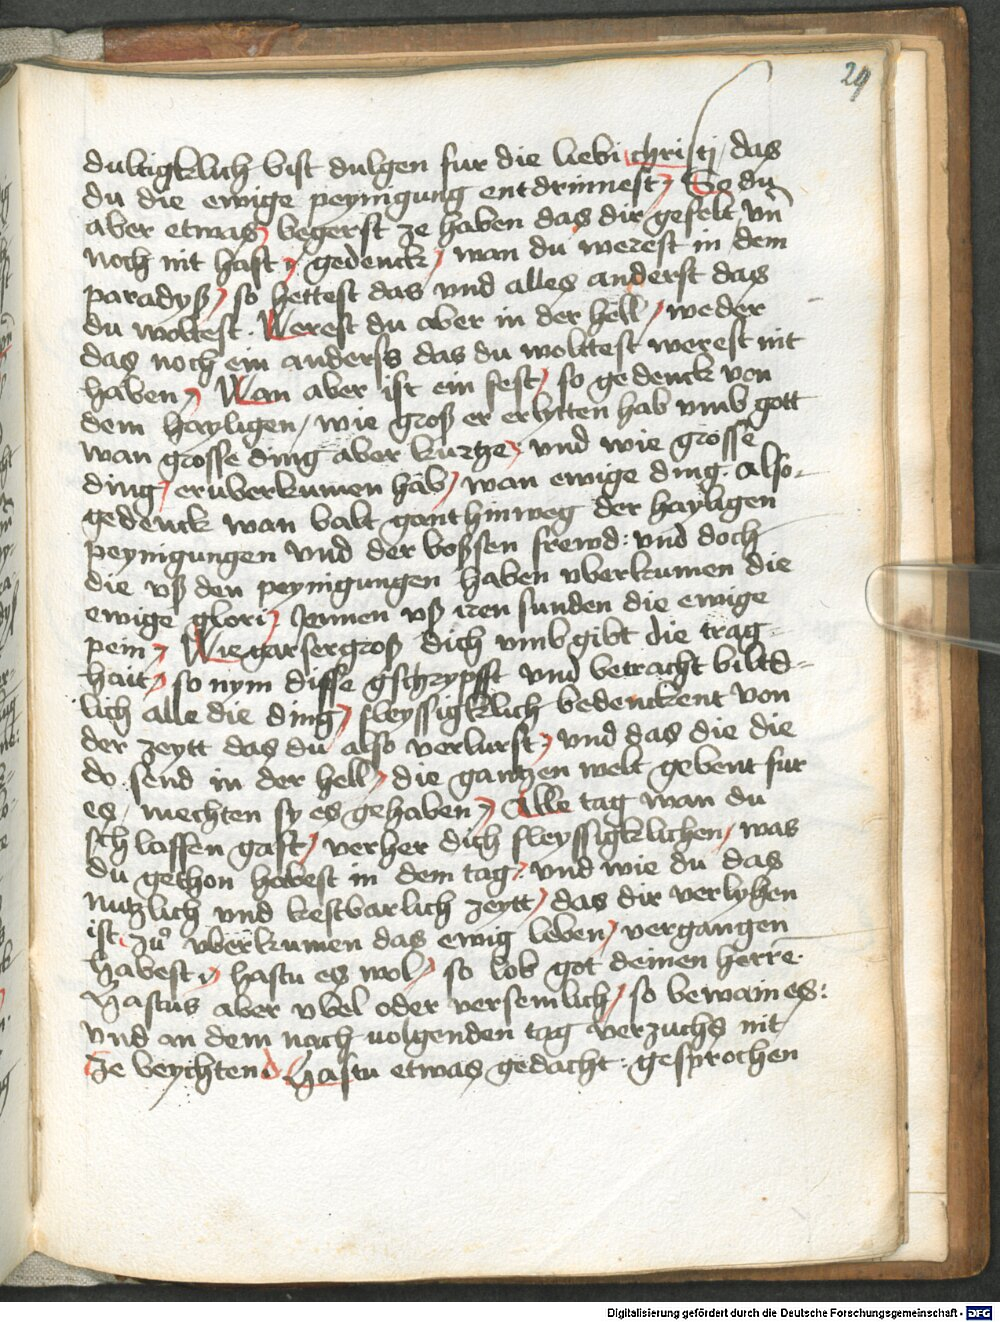 29
dultigklich bist dulgen fur die liebi christi / das
du die ewige peynigung entdrinnest / So du
aber etwas / begerst ze haben das dir gefelt vn̄
noch nit hast / gedenck / wan du werest in dem
paradyß / so hettest das vnd alles anderst das
du woltest. Werest du aber in der hell / weder
das noch ein anderss das du wolttest werest nit
haben / Wan aber ist ein fest / so gedenck von
dem hayligen / wie groß er erlytten hab vmb gott
wan grosse ding aber kurtze / vnd wie grosse
ding / eruberkumen hab / wan ewige ding. also-
gedenck wan balt gant hinweg der hayligen
peynigungen vnd der boßsen frewd: vnd doch
die vß den peynigungen haben vberkumen die
ewige glori / Jennen vß iren sunden die ewige
pein / Wie gar sergroß dich vmb gibt die trag-
hait / so nym disse gschrypfft vnd betracht biltd-
lich alle die ding / fleyssigklich bedenckent von
der zeytt das du also verlurst / vnd das die die
do send in der hell / die gantzen welt gebent fur
es / mechten sy es gehaben / Alle tag wan du
schlaffen gast / verher dich fleyssigklichen / was
du gethon habest in dem tag: vnd wie du das
nutzlich vnd kestbarlich zeytt / das dir verlyhen
ist. zu vberkumen das ewig leben / vergangen
habest / hastu es wol / so lob got deinen herre.
Hastus aber vbel oder versemlich / so bewain es:
vnd an dem nach uolgenden tag verzuchs nit /
ze beychten. Hastu etwas gedacht: gesprochen
Digitalisierung gefördert durch die Deutsche Forschungsgemeinschaft - DFG